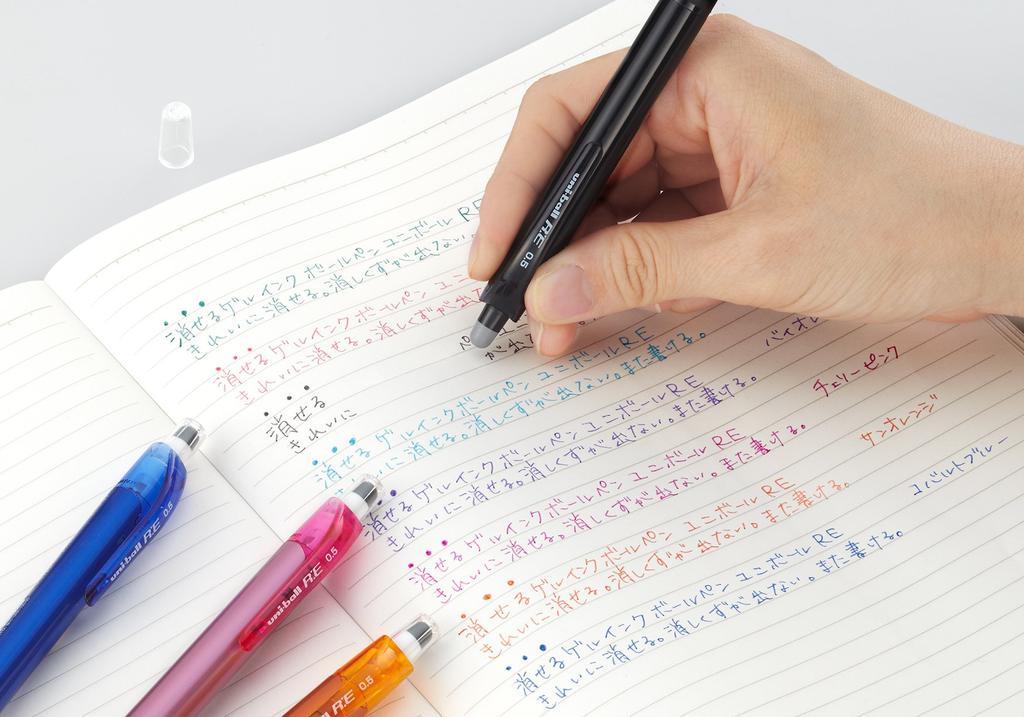 消せるゲルインク ボールペン ユニボール RE
きれいに消せる。消しくずが出ない。
消せるゲルインク ボールペン ユニ
きれいに消せる。消しくずが出な
消せる
きれいに
が出
消せるゲルインクボールペン ユニボールRE
れいに消せる。消しくずが出ない。また書ける。
バイオレ
消せるゲルインクボールペン ユニボールRE
きれいに消せる。消しくずが出ない。また書ける。
チェリーピンク
消せるゲルインクボールペン ユニボール RE
消せる。消しくずが出ない。また書ける。
サンオレンジ
消せるゲルインクボールペン ユニボールRE
きれいに消せる。消しくずが出ない。また書ける。
コバルトブルー
消せるゲルインク ボールペン ユニボール RE
きれいに消せる。消しくずが出ない。また書ける。
uni-ball R:E 0.5
uni-ball R:E 0.5
uni-ball R:E 0.5
R:E 0.5